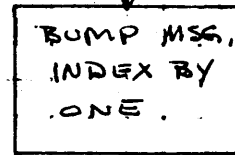 BUMP MSG.
INDEX BY
ONE.